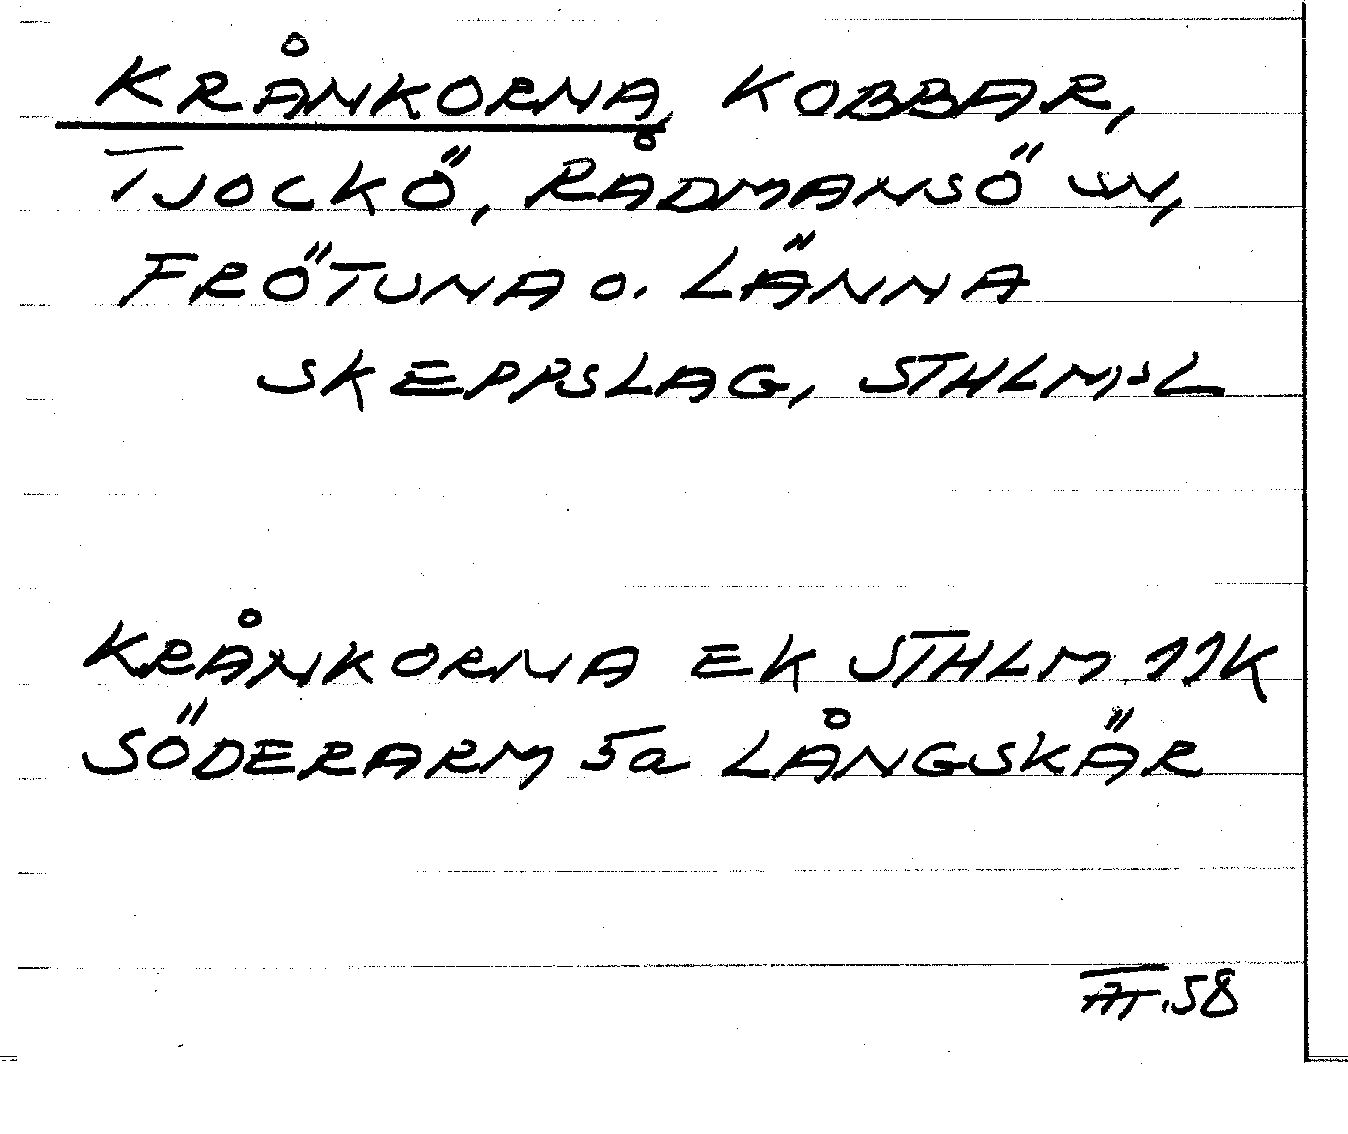 KRÅNKORNA, KOBBAR,
TJOCKÖ, RÅDMANSÖ SN,
FRÖTUNA o. LÄNNA
SKEPPSLAG, STHLM:S L
KRÅNKORNA EK STHLM 11K
SÖDERARM 5a LÅNGSKÄR
AT.58